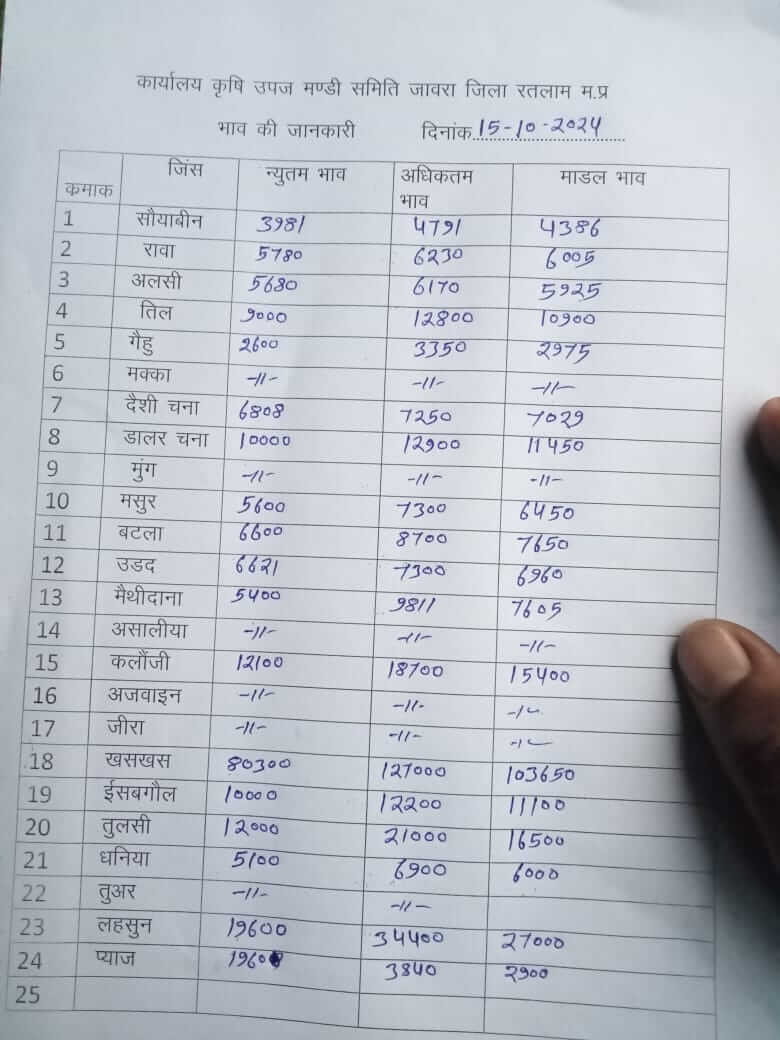 कार्यालय कृषि उपज मण्डी समिति जावरा जिला रतलाम म.प्र
भाव की जानकारी दिनांक 15-10-2024
कमाक जिंस न्युतम भाव अधिकतम भाव माडल भाव
1 सौयाबीन 3981 4791 4386
2 रावा 5780 6230 6005
3 अलसी 5680 6170 5925
4 तिल 9000 12800 10900
5 गैहु 2600 3350 2975
6 मक्का -11- -11- -11-
7 दैशी चना 6808 7250 7029
8 डालर चना 10000 12900 11450
9 मुंग -11- -11- -11-
10 मसुर 5600 7300 6450
11 बटला 6600 8700 7650
12 उडद 6621 7300 6960
13 मैथीदाना 5400 9811 7605
14 असालीया -11- -11- -11-
15 कलौंजी 12100 18700 15400
16 अजवाइन -11- -11-
17 जीरा -11- -11-
18 खसखस 80300 127000 103650
19 ईसबगौल 10000 12200 11100
20 तुलसी 12000 21000 16500
21 धनिया 5100 6900 6000
22 तुअर -11- -11-
23 लहसुन 19600 34400 27000
24 प्याज 3840 2900
25